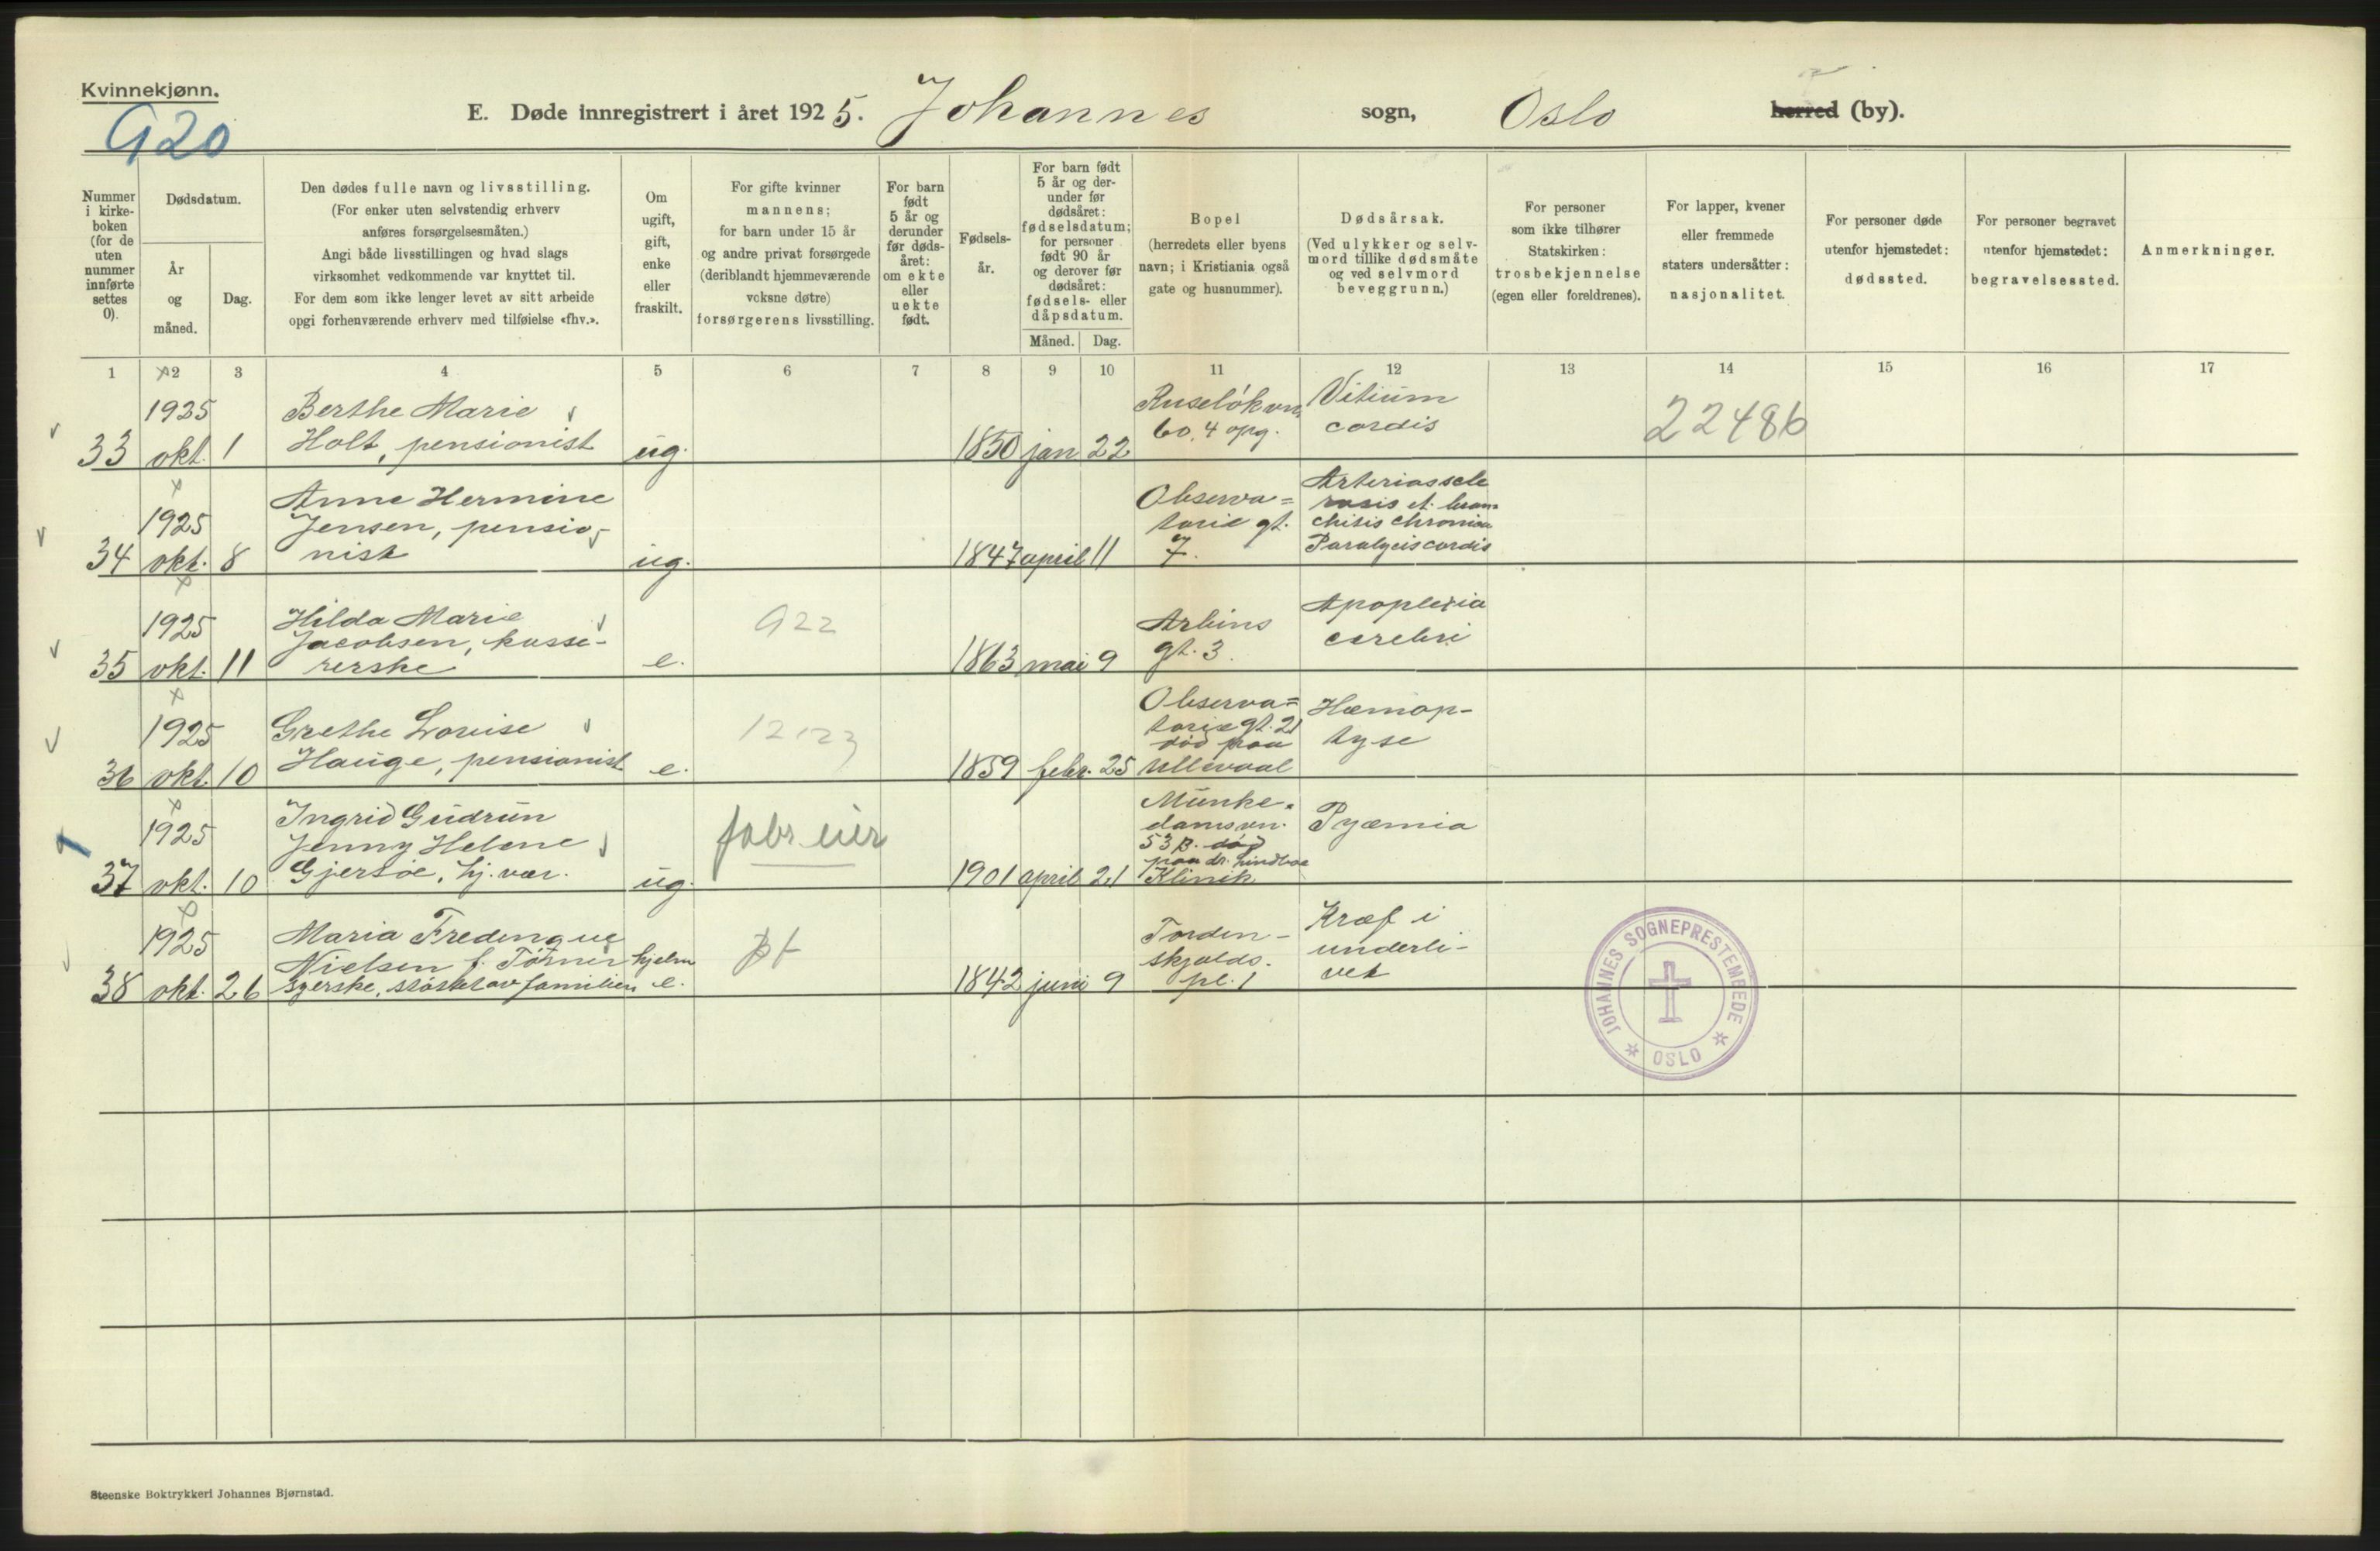 Kvinnekjønn.
920
E. Døde innregistrert i året 1925. Johannes sogn, Oslo herred (by).
Nummer
i kirke-
boken
(for de
uten
nummer
innførte
settes
0).
Dødsdatum.
År
og
måned.
Dag.
Den dødes fulle navn og livsstilling.
(For enker uten selvstendig erhverv
anføres forsørgelsesmåten.)
Angi både livsstillingen og hvad slags
virksomhet vedkommende var knyttet til.
For dem som ikke lenger levet av sitt arbeide
opgi forhenværende erhverv med tilføielse «fhv.».
Om
ugift,
gift,
enke
eller
fraskilt.
For gifte kvinner
mannens;
for barn under 15 år
og andre privat forsørgede
(deriblandt hjemmeværende
voksne døtre)
forsørgerens livsstilling.
For barn
født
5 år og
derunder
før døds-
året:
om ekte
eller
uekte
født.
Fødsels-
år.
For barn født
5 år og der-
under før
dødsåret:
fødselsdatum;
for personer
født 90 år
og derover før
dødsåret:
fødsels- eller
dåpsdatum.
Måned. Dag.
Bopel
(herredets eller byens
navn; i Kristiania også
gate og husnummer).
Dødsårsak.
(Ved ulykker og selv-
mord tillike dødsmåte
og ved selvmord
beveggrunn.)
For personer
som ikke tilhører
Statskirken:
trosbekjennelse
(egen eller foreldrenes).
For lapper, kvener
eller fremmede
staters undersåtter:
nasjonalitet.
For personer døde
utenfor hjemstedet:
dødssted.
For personer begravet
utenfor hjemstedet:
begravelsessted.
Anmerkninger.
1 2 3 4 5 6 7 8 9 10 11 12 13 14 15 16 17
33
1925
okt. 1
Berthe Marie
Holt, pensionist
ug.
1850 jan 22
Ruseløkvn
60, 4 opg.
Vitium
cordis
22486
34
1925
okt. 8
Anne Hermine
Jensen, pensio-
nist
ug.
1847 april 11
Observa=
torie gt.
7.
Arterioscle
rosis et bron-
chitis chronica
Paralysis cordis
35
1925
okt. 11
Hilda Marie
Jacobsen, kasse-
rerske
e.
922
1863 mai 9
Arbins
gt. 3.
Apoplexia
cerebri
36
1925
okt. 10
Grethe Lovise
Hauge, pensionist
e.
12123
1859 febr. 25
Observa=
torie gt. 21
død paa
Ullevaal
Hæmop-
tyse
37
1925
okt. 10
Ingrid Gudrun
Jenny Helene
Gjersøe, hj. vær.
ug.
fabr eier
1901 april 21
Munke-
damsvn.
53 B. død
paa dr.
Klinik
Pyæmia
38
1925
okt. 26
Maria Frederique
Nielsen f. Tørner hjelm
syerske, støttet av familien
e.
1842 juni 9
Torden-
skjolds.
pl. 1
Kræf i
underli-
vet
JOHANNES SOGNEPRESTEMBEDE
OSLO
Steenske Boktrykkeri Johannes Bjørnstad.